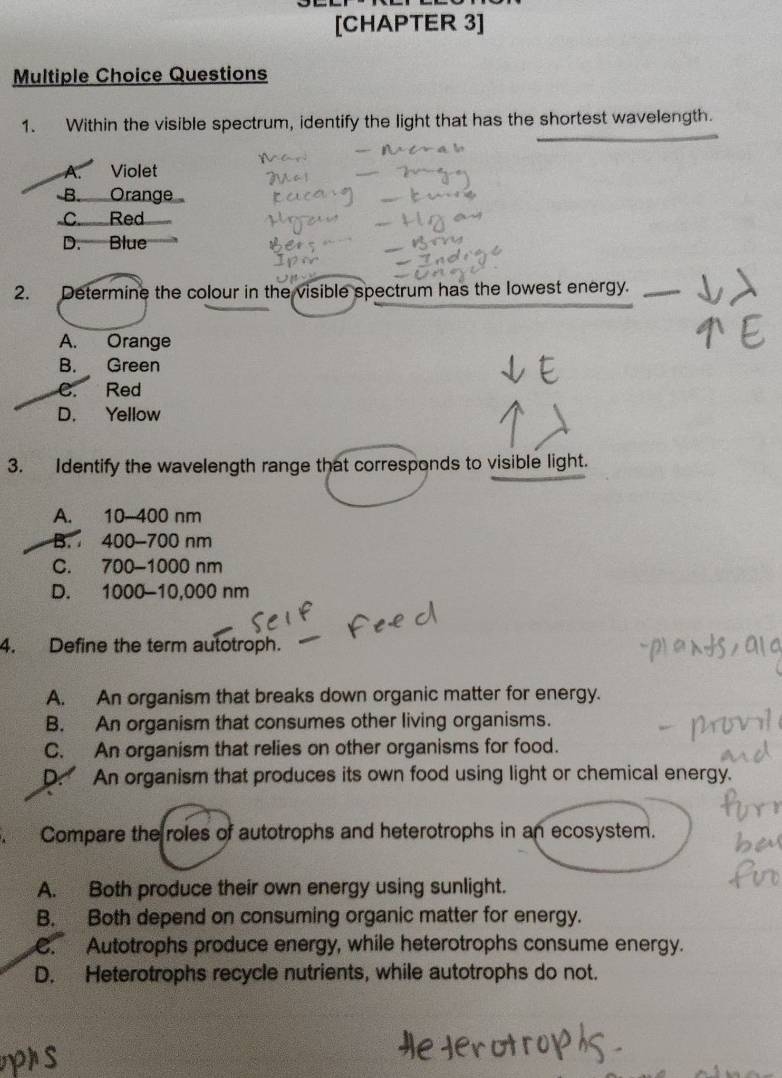 [CHAPTER 3]
Multiple Choice Questions
1. Within the visible spectrum, identify the light that has the shortest wavelength.
- merah
A. Violet
B. Orange
kacang
C. Red
D. Blue
- Indigo
2. Determine the colour in the visible spectrum has the lowest energy. — ↓ λ
↑ E
A. Orange
B. Green
↓ E
C. Red
D. Yellow
↑ λ
3. Identify the wavelength range that corresponds to visible light.
A. 10–400 nm
B. 400–700 nm
C. 700–1000 nm
D. 1000–10,000 nm
- self - feed
4. Define the term autotroph.
-plants, alg
A. An organism that breaks down organic matter for energy.
B. An organism that consumes other living organisms.
C. An organism that relies on other organisms for food.
and
D. An organism that produces its own food using light or chemical energy.
Compare the roles of autotrophs and heterotrophs in an ecosystem.
A. Both produce their own energy using sunlight.
B. Both depend on consuming organic matter for energy.
C. Autotrophs produce energy, while heterotrophs consume energy.
D. Heterotrophs recycle nutrients, while autotrophs do not.
Heterotrophs.